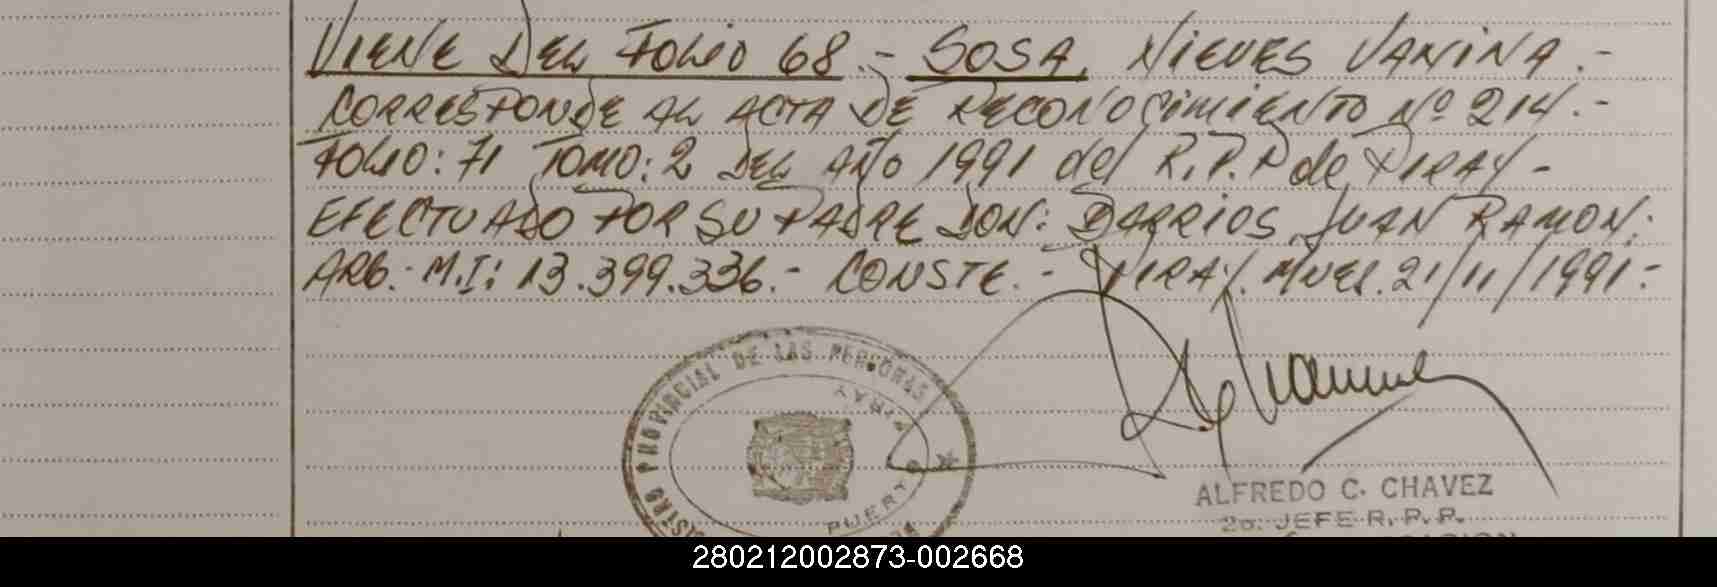 VIENE DEL FOLIO 68.- SOSA, NIEVES VANINA.-
CORRESPONDE AL ACTA DE RECONOCIMIENTO Nº 214.-
FOLIO: 71 TOMO: 2 DEL AÑO 1991 del R.P.P de PIRAY-
EFECTUADO POR SU PADRE DON: BARRIOS JUAN RAMON;
ARG.- M.I: 13.399.336.- CONSTE.- PIRAY. MNES. 21/11/1991.-
PROVINCIAL DE LAS PERSONAS
PUERTO PIRAY
ALFREDO C. CHAVEZ
2o. JEFE R.P.P.
280212002873-002668